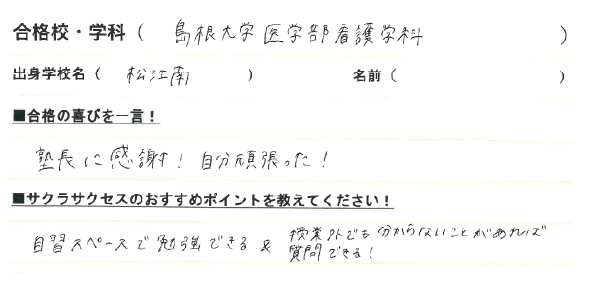 合格校・学科（ 島根大学 医学部看護学科 ）
出身学校名（ 松江南 ） 名前（ ）
■合格の喜びを一言！
塾長に感謝！自分頑張った！
■サクラサクセスのおすすめポイントを教えてください！
自習スペースで勉強できる & 授業外でも分からないことがあれば
質問できる！